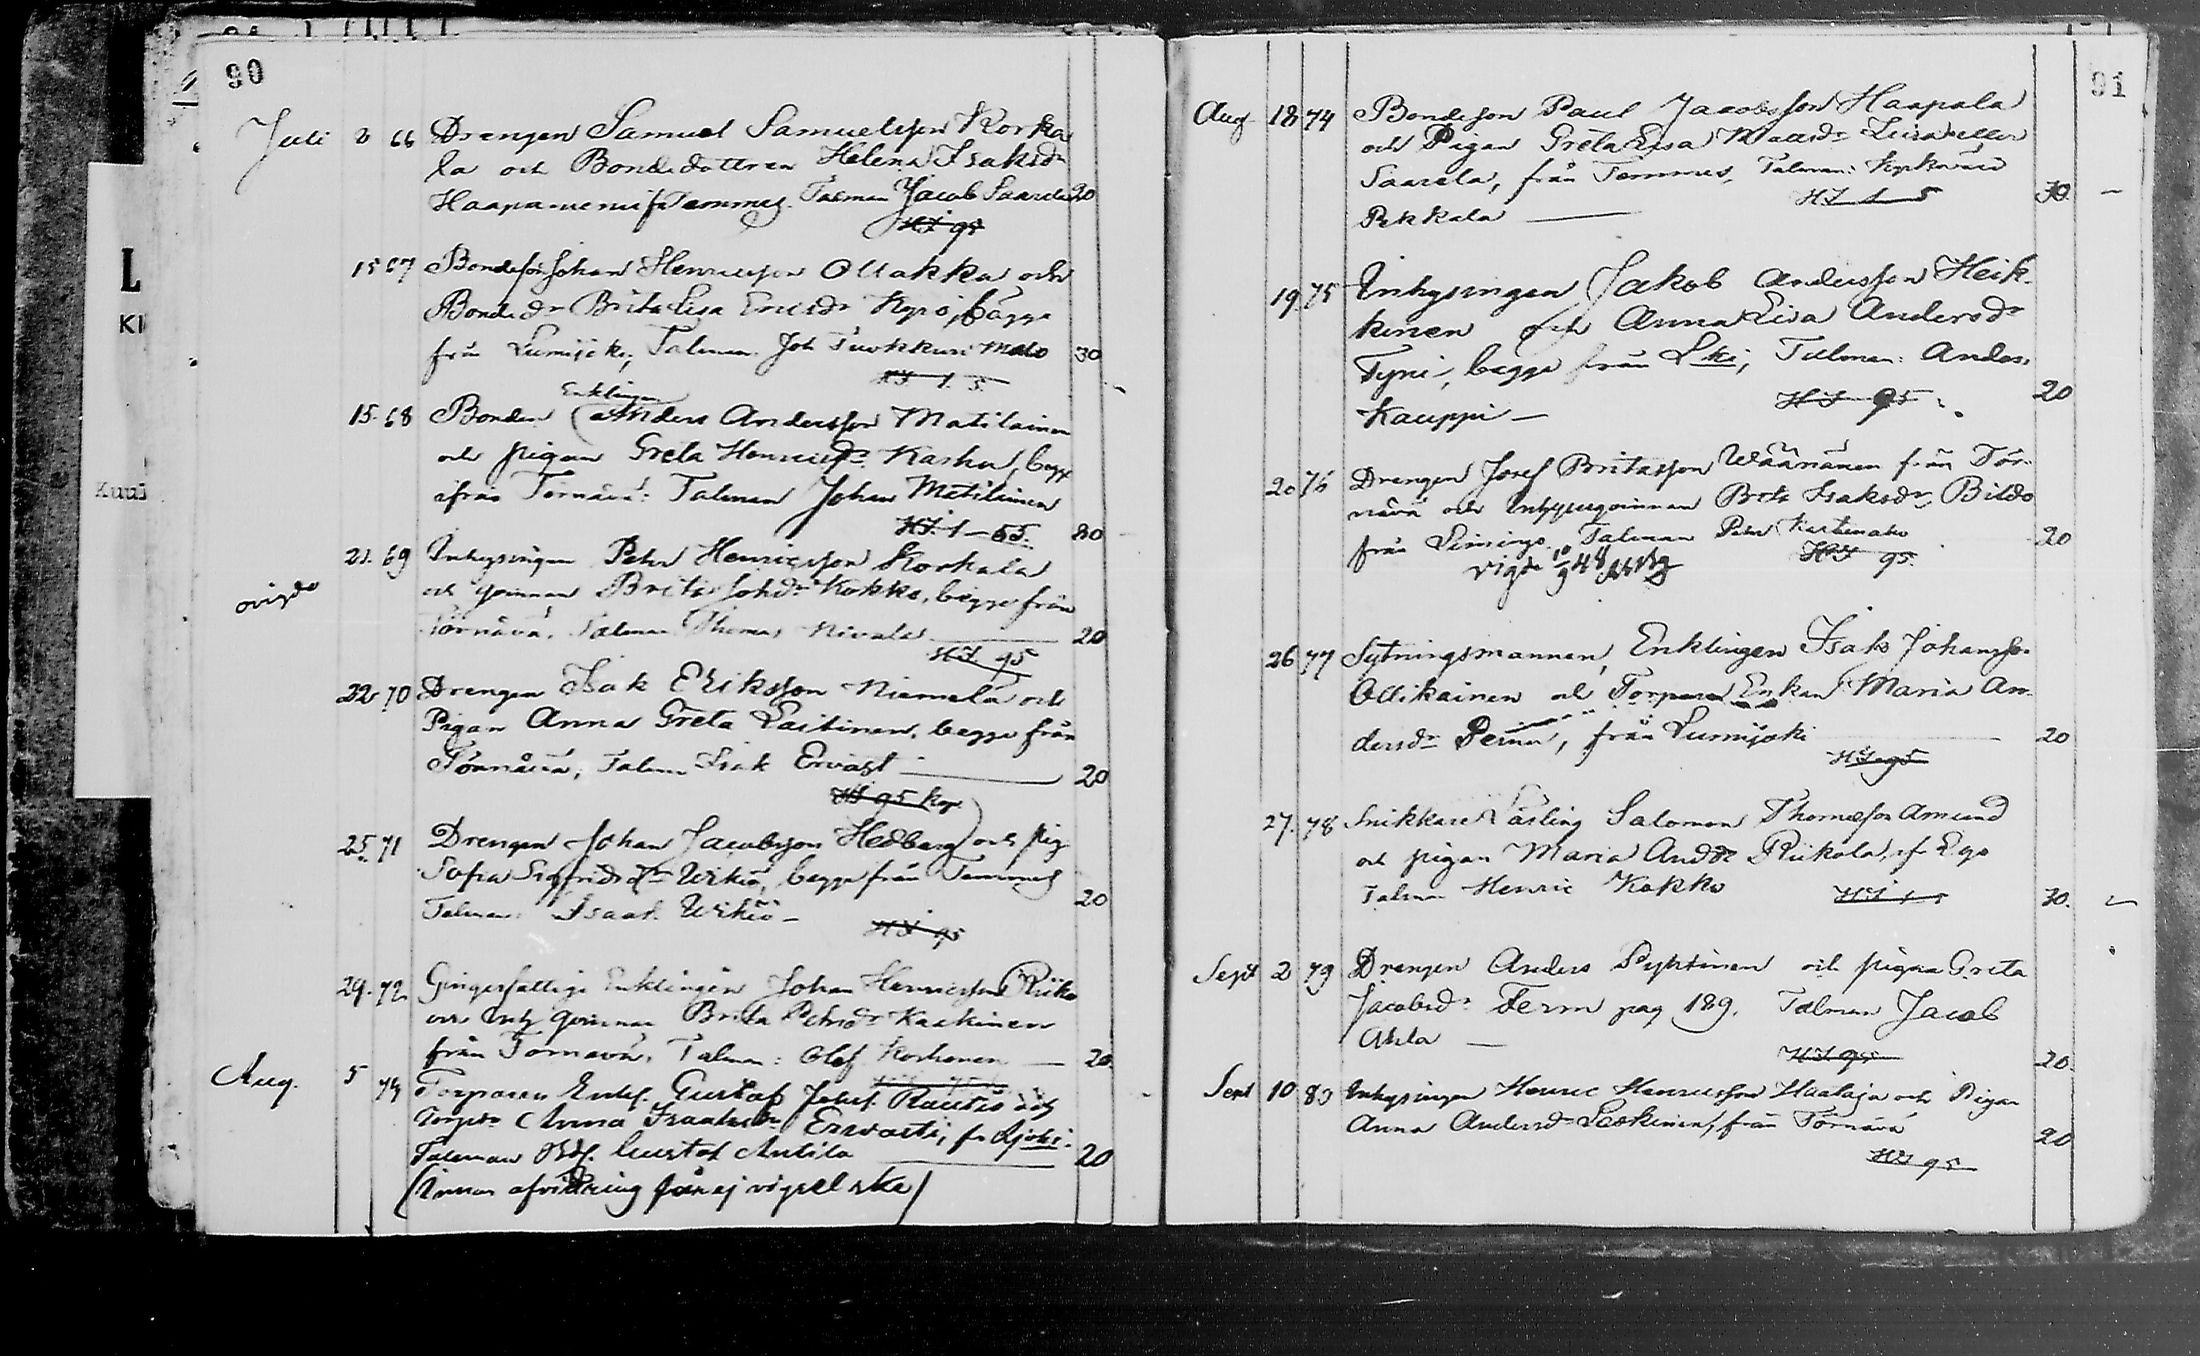 90
Juli 2 66 Drengen Samuel Samuelsson Korka
la och Bondedottren Helena Isaksdr
Haapaniemi fr Temmes. Talman Jacob Saarela 20
15 67 Bondeson Johan Henricsson Ollakka och
Bondedr Brita Lisa Ericsdr Kyrö, bägge
från Lumijoki, Talman Joh 30
Enklingen
15 68 Bonden Anders Andersson Matilainen
och pigan Greta Henricsdr Karhu, begge
ifrån Törnävä: Talman Johan Matilainen
H.S. 1-55. 80
21. 69 Inhysingen Petr Henricsson Korkala
ovigde och qvinnan Brita Johsdr Kokko, begge från
Törnävä. Talman Thomas Nivala 20
H.S. 95
22 70 Drengen Isak Eriksson Niemelä och
Pigan Anna Greta Laitinen, begge från
Törnävä, Talman Isak Ervast 20
HS 95 kop
25. 71 Drengen Johan Jacobsson Hedberg och pig
Sofia Sigfridsdr Wikiö, begge från Temmes
Talman: Isaak Wikiö 20
HS 95
29. 72 Gingersfattige Enklingen Johan Henricsson Riiko
och Inh qvinnan Brita Petrsdr Kaikinen
från Törnävä, Talman: Olof Korhonen 20
Aug. 5 73 Torparen Enkl. Gustaf Josef. Rautio och
Torpdr Anna Isaaksdr Ervasti, fr Ljoki.
Taleman Gustaf Antila 20
(Innan afvittring får ej vigsel ske)
91
Aug 18 74 Bondeson Paul Jacobsson Haapala
och Pigan Greta Lisa eller
Saarela, från Temmes, Talman:
Pekkala H.S. 1 5 30
19 75 Inhysingen Jakob Andersson Heik-
kinen och Anna Lisa Andersdr
Tyni, begge från Lki, Talman: Anders
Kauppi H S 95 20
20 76 Drengen Josef Britasson Wäänänen från Tör-
nävä och Inhysqvinnan Brita Isaksdr Bildo
från Limingo Talman Petr 20
vigde 10/9 48 HS 95
26 77 Sytningsmannen, Enklingen Isak Johansson
Ollikainen och Torpare Enkan Maria An-
dersdr från Lumijoki 20
HS 95
27. 78 Snikkare Lärling Salomon Thomasson Amund
och pigan Maria Anddr Riikola, fr Lgo
Talman Henric Kokko H.S. 1 5 30.
Sept 2 79 Drengen Anders Pyktinen och pigan Greta
Jacobsdr Ferm pag 189. Talman Jacob
Ahla
HS 95 20.
Sept 10 80 Inhysingen Henric Henricsson Haataja och Pigan
Anna Andersdr Leskinen, från Törnävä 20
HS 95